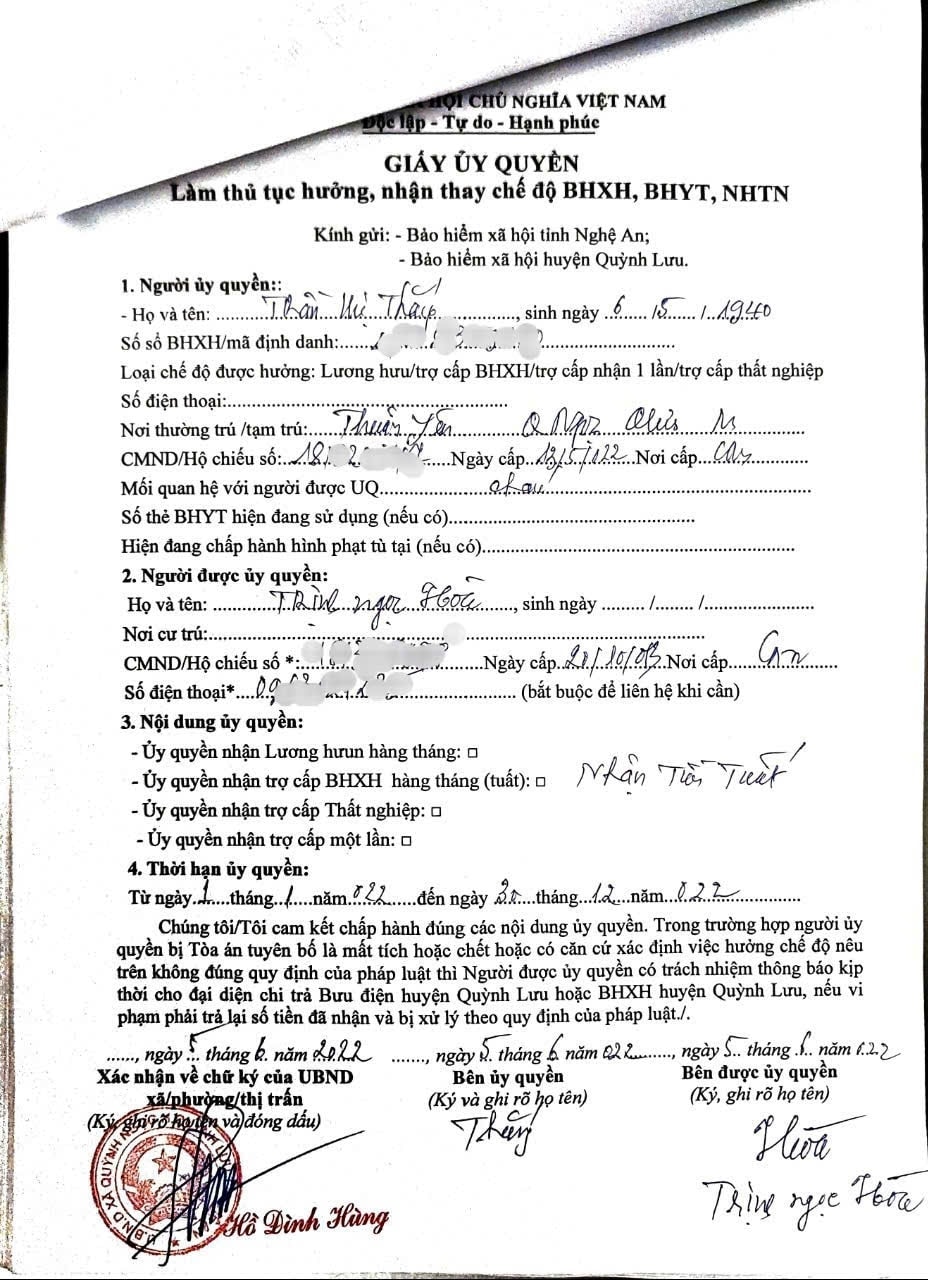 HỘI CHỦ NGHĨA VIỆT NAM
Độc lập - Tự do - Hạnh phúc
GIẤY ỦY QUYỀN
Làm thủ tục hưởng, nhận thay chế độ BHXH, BHYT, NHTN
Kính gửi: - Bảo hiểm xã hội tỉnh Nghệ An;
- Bảo hiểm xã hội huyện Quỳnh Lưu.
1. Người ủy quyền::
- Họ và tên: Trần Thị , sinh ngày 6 / 5 / 1940
Số sổ BHXH/mã định danh:
Loại chế độ được hưởng: Lương hưu/trợ cấp BHXH/trợ cấp nhận 1 lần/trợ cấp thất nghiệp
Số điện thoại:
Nơi thường trú /tạm trú: Thuận Yên
CMND/Hộ chiếu số: 18 Ngày cấp 13/5/022 Nơi cấp
Mối quan hệ với người được UQ cháu
Số thẻ BHYT hiện đang sử dụng (nếu có)
Hiện đang chấp hành hình phạt tù tại (nếu có)
2. Người được ủy quyền:
Họ và tên: Trịnh ngọc Hòa , sinh ngày / /
Nơi cư trú:
CMND/Hộ chiếu số *: Ngày cấp Nơi cấp
Số điện thoại* (bắt buộc để liên hệ khi cần)
3. Nội dung ủy quyền:
- Ủy quyền nhận Lương hưun hàng tháng: □
- Ủy quyền nhận trợ cấp BHXH hàng tháng (tuất): □ Nhận Tiền Tuất
- Ủy quyền nhận trợ cấp Thất nghiệp: □
- Ủy quyền nhận trợ cấp một lần: □
4. Thời hạn ủy quyền:
Từ ngày 1 tháng 1 năm 022 đến ngày 30 tháng 12 năm 022
Chúng tôi/Tôi cam kết chấp hành đúng các nội dung ủy quyền. Trong trường hợp người ủy
quyền bị Tòa án tuyên bố là mất tích hoặc chết hoặc có căn cứ xác định việc hưởng chế độ nêu
trên không đúng quy định của pháp luật thì Người được ủy quyền có trách nhiệm thông báo kịp
thời cho đại diện chi trả Bưu điện huyện Quỳnh Lưu hoặc BHXH huyện Quỳnh Lưu, nếu vi
phạm phải trả lại số tiền đã nhận và bị xử lý theo quy định của pháp luật./.
......, ngày 5 tháng 6 năm 2022 ......., ngày 5 tháng 6 năm 022 , ngày 5 tháng năm 022
Xác nhận về chữ ký của UBND Bên ủy quyền Bên được ủy quyền
xã/phường/thị trấn (Ký và ghi rõ họ tên) (Ký, ghi rõ họ tên)
(Ký, ghi rõ họ tên và đóng dấu)
Hòa
Trịnh ngọc Hòa
Hồ Đình Hùng